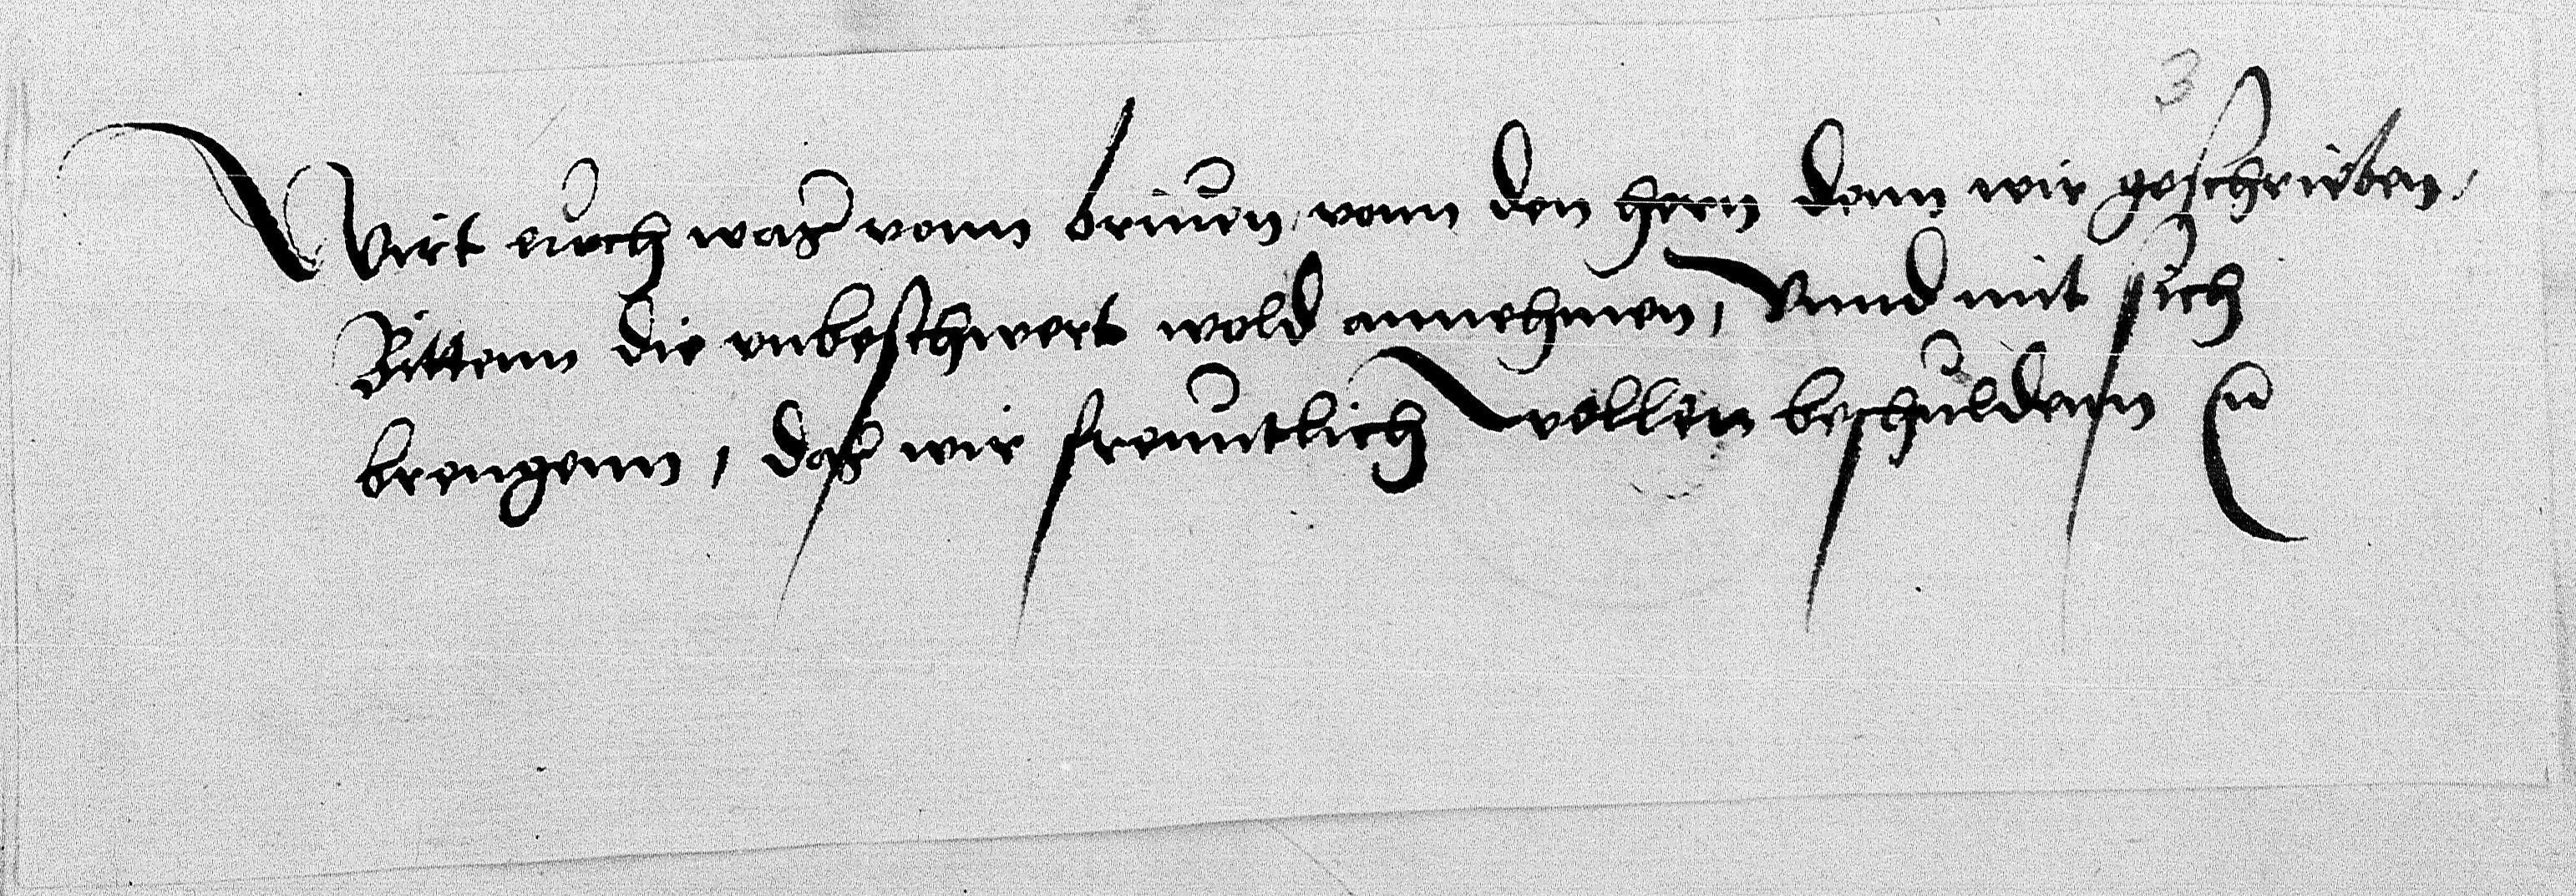 3
Wirt euch was vonn briuen, vonn den hern denn wir geschrieben,
Bittenn die vnbeschwert wold annehmen, Vnnd mit sich
brengenn, das wir freuntlich wollen beschuldenn